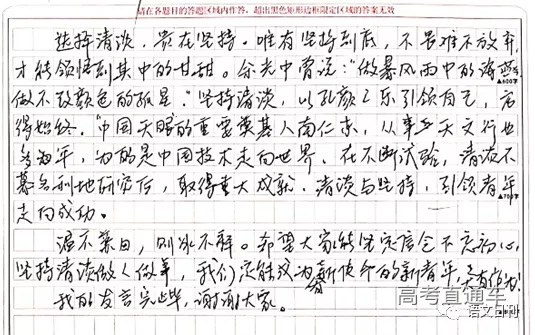 请在各题目的答题区域内作答，超出黑色矩形边框限定区域的答案无效
选择清淡，贵在坚持。唯有坚持到底，不畏难不放弃，
才能领悟到其中的甘甜。余光中曾说："做暴风雨中的海燕，
做不改颜色的孤星。"坚持清淡，以孔颜之乐引领自己，方
得始终。"中国天眼的重要奠基人南仁东，从事天文行业
多年，为的是中国技术走向世界。在不断试验，清淡不
慕名利地研究后，取得重大成就。清淡与坚持，引领青年
走向成功。
温不药日，则冰不释。希望大家能坚定信念不忘初心，
坚持清淡做人做事，我们定能成为新使命的新青年，大有作为！
我的发言完毕，谢谢大家。
高考直通车
语文日刊